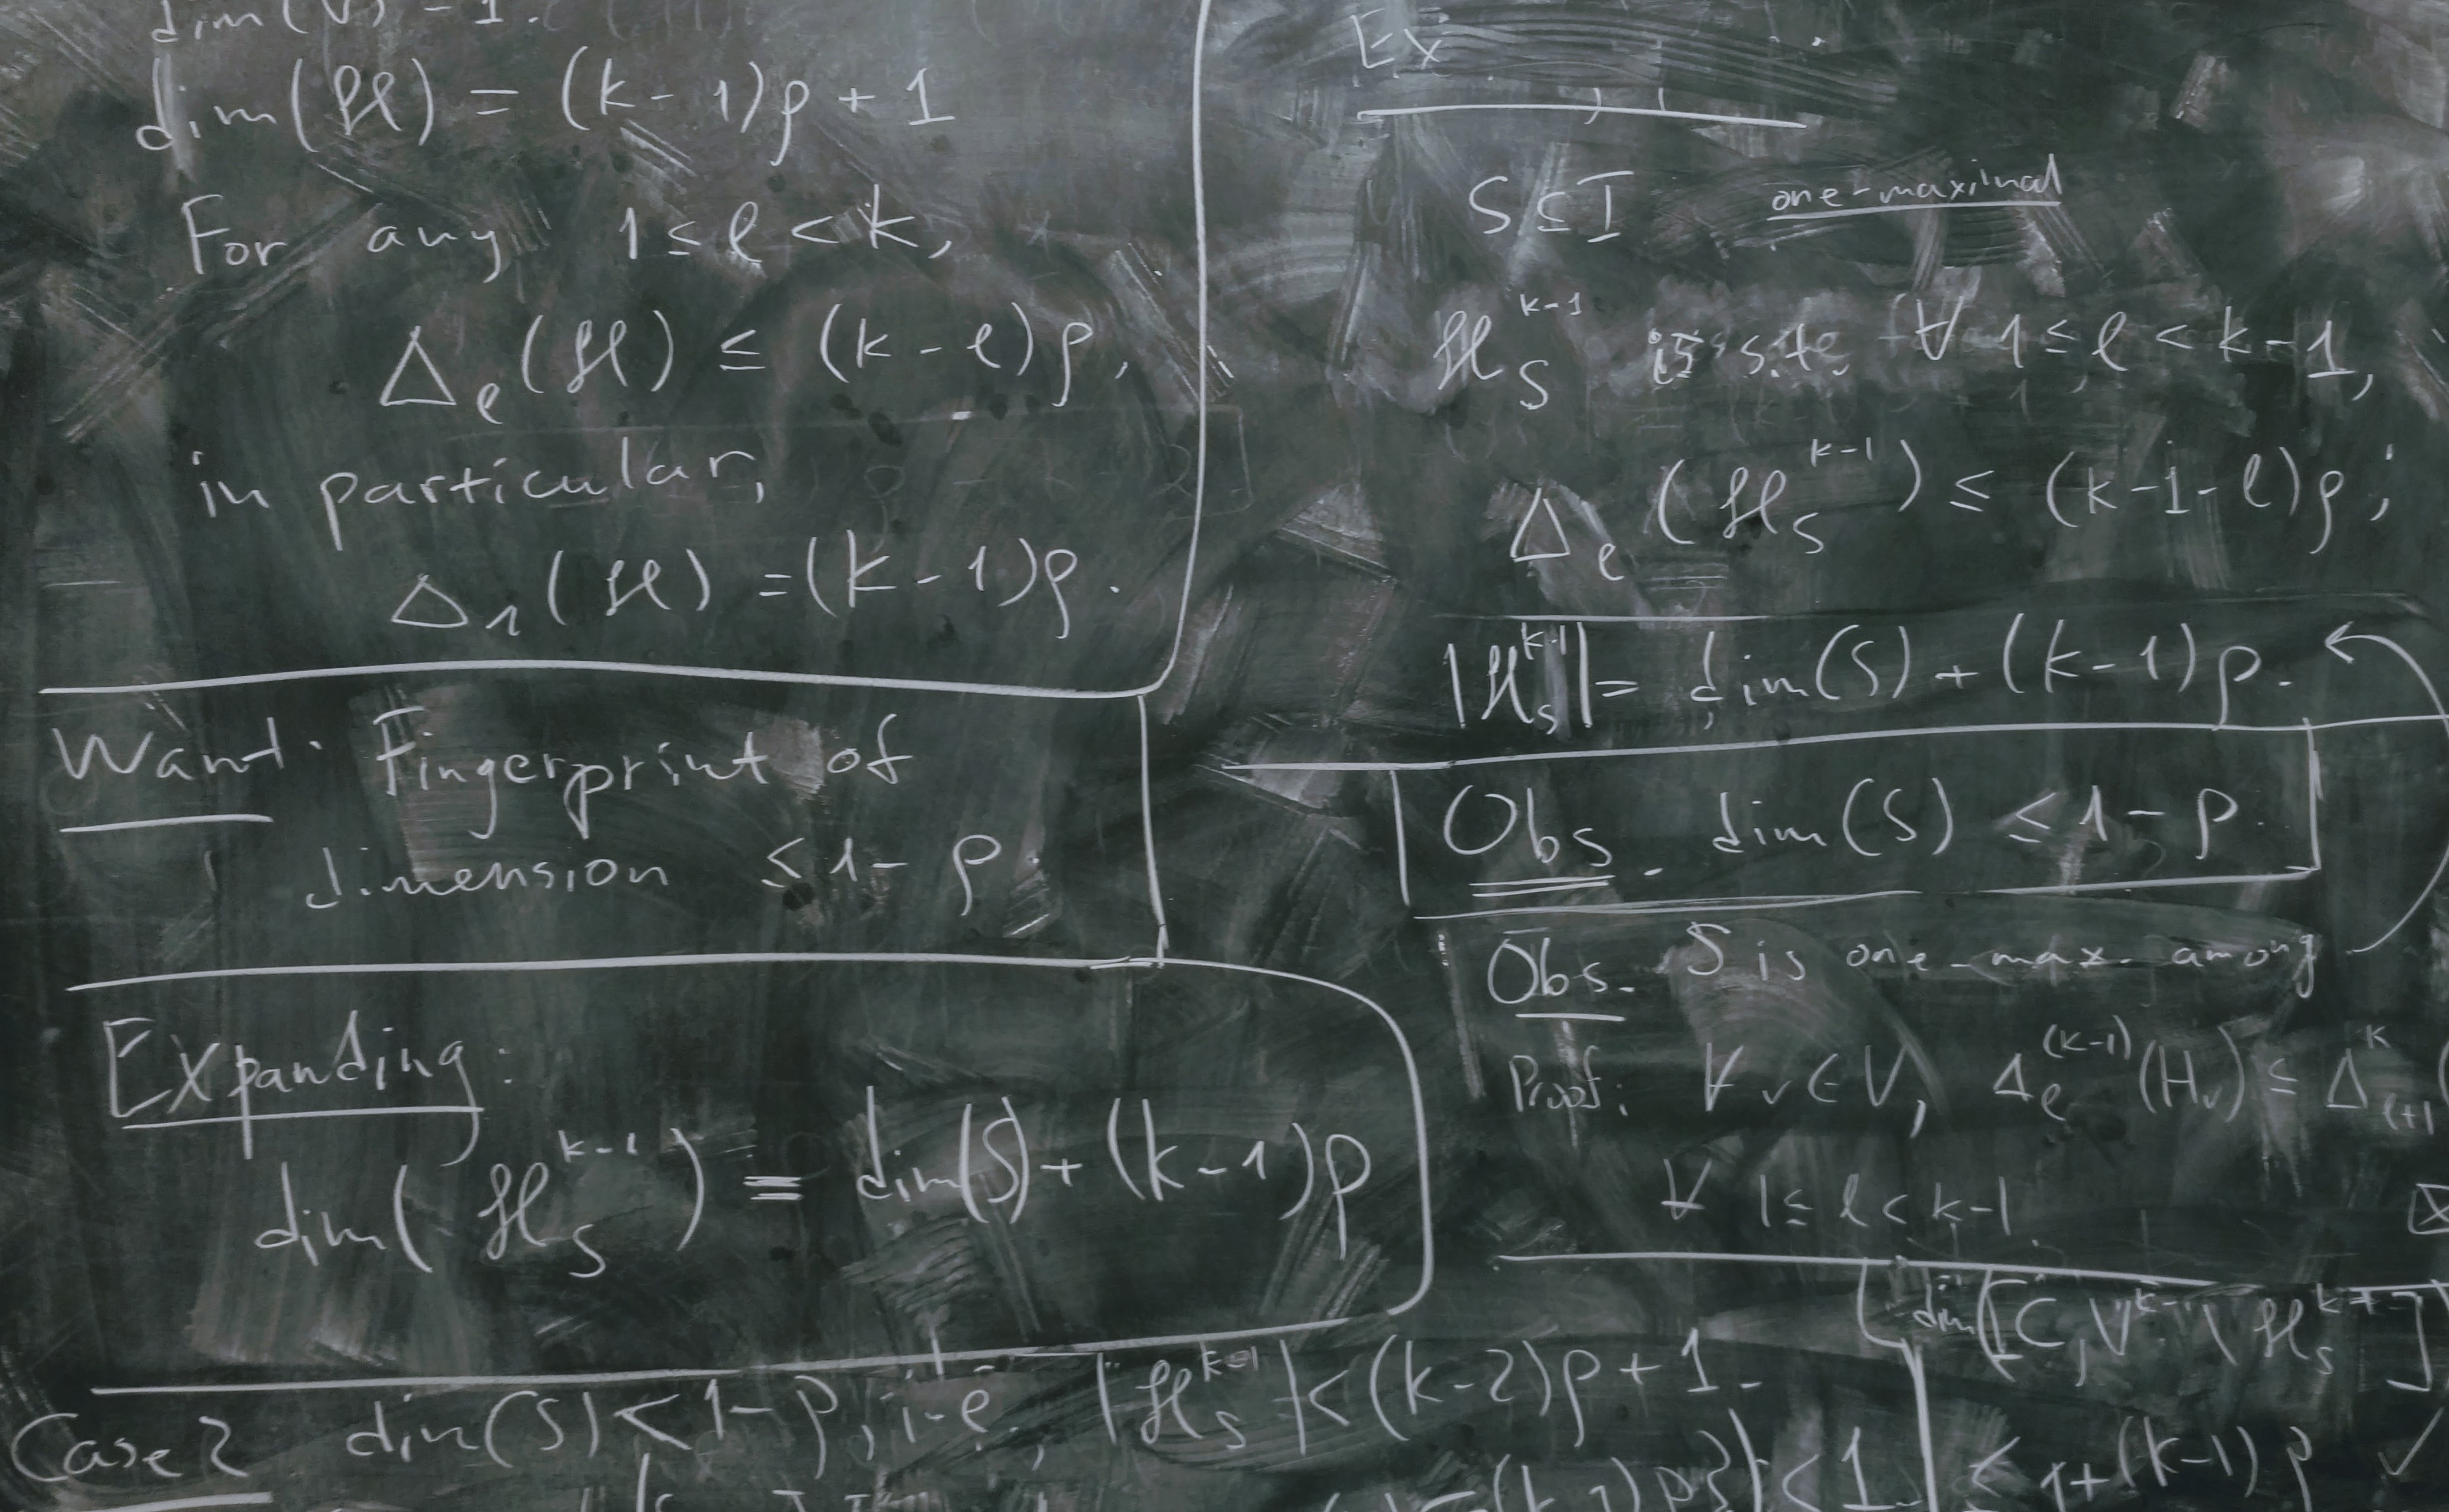 dim(V) = 1.
dim(ℋ) = (k-1)ρ + 1
For any 1 ≤ ℓ < k,
Δ_ℓ(ℋ) ≤ (k-ℓ)ρ,
in particular,
Δ_1(ℋ) = (k-1)ρ.
Want: Fingerprint of
dimension ≤ 1-ρ.
Expanding:
dim(ℋ_S^{k-1}) = dim(S) + (k-1)ρ
Case 2 dim(S) < 1-ρ, i.e., |ℋ_S^{k-1}| < (k-2)ρ + 1.
Ex
S ⊆ I one-maximal
ℋ_S^{k-1} is s.t. ∀ 1 ≤ ℓ < k-1,
Δ_ℓ(ℋ_S^{k-1}) ≤ (k-1-ℓ)ρ;
|ℋ_S^{k-1}| = dim(S) + (k-1)ρ.
Obs. dim(S) ≤ 1-ρ.
Obs. S is one-max. among
Proof: ∀ v ∈ V, Δ_ℓ^{(k-1)}(H_v) ≤ Δ_{ℓ+1}^k (
∀ 1 ≤ ℓ < k-1.
< 1
≤ 1+(k-1)ρ ✓